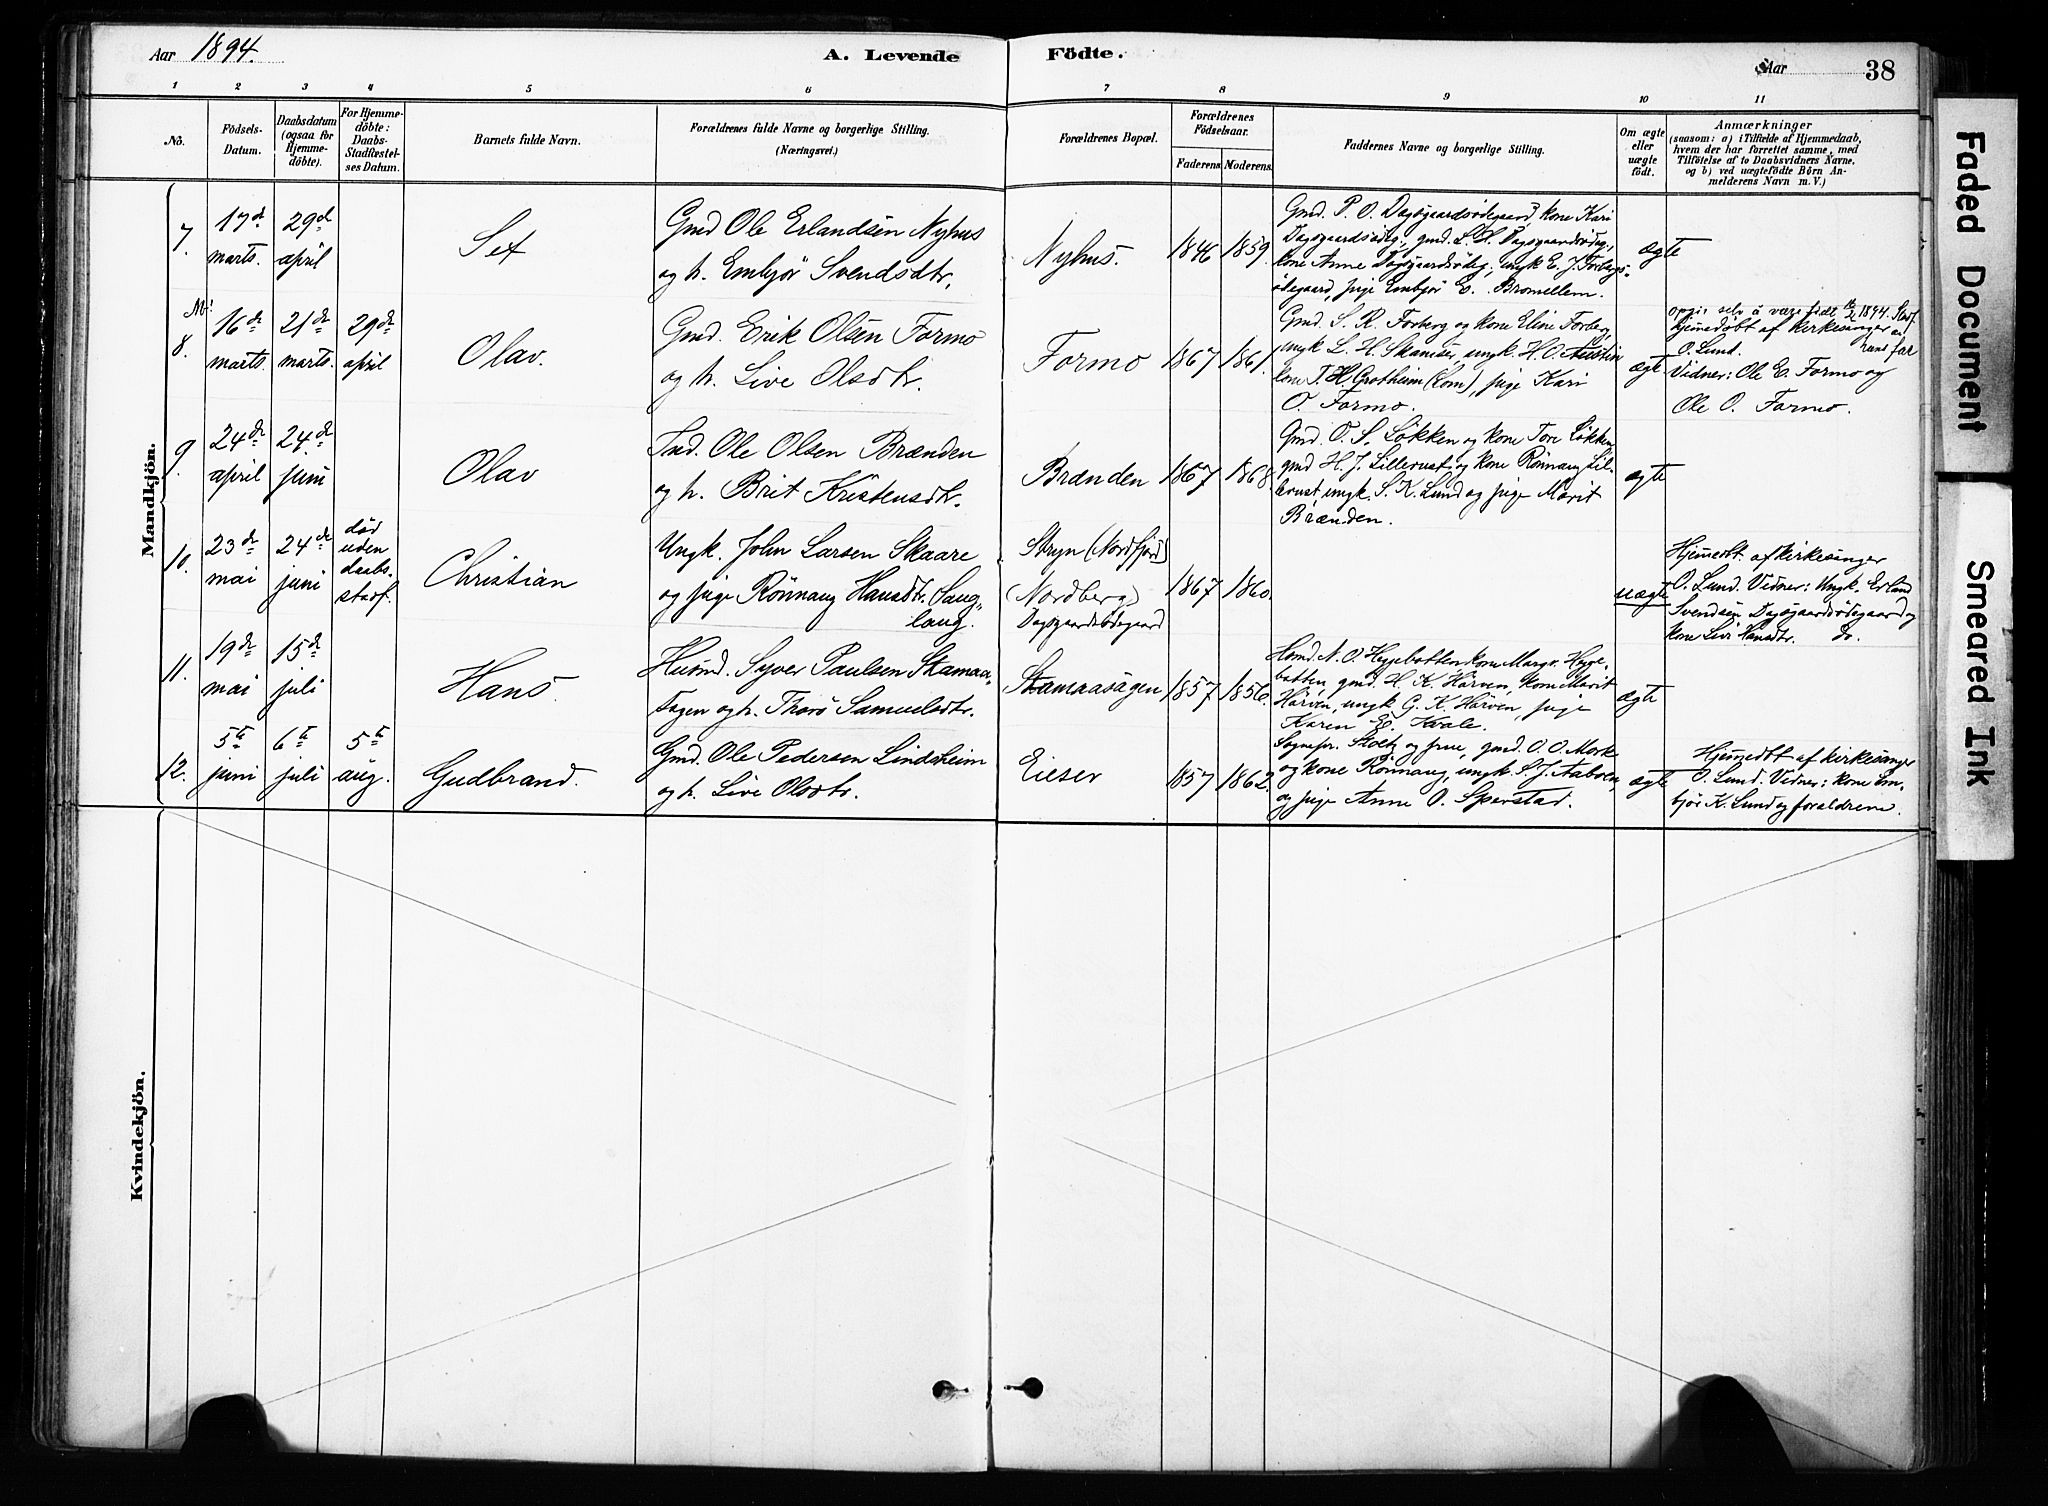 Aar 1894.
A. Levende
Födte.
Aar
38
1
2
3
4
5
6
7
8
9
10
11
No.
Födsels-
Datum.
Daabsdatum
(ogsaa for
Hjemme-
döbte).
For Hjemme-
döbte:
Daabs-
Stadfæstel-
ses Datum.
Barnets fulde Navn.
Forældrenes fulde Navne og borgerlige Stilling.
(Næringsvei.)
Forældrenes Bopæl.
Forældrenes
Födselsaar.
Faderens
Moderens.
Faddernes Navne og borgerlige Stilling.
Om ægte
eller
uægte
födt.
Anmærkninger
(saasom: a) i Tilfælde af Hjemmedaab,
hvem der har forrettet samme, med
Tilföielse af to Daabsvidners Navne,
og b) ved uægtefödte Börn An-
melderens Navn m. V.)
Mandkjön.
7.
17d
marts.
29d
april
Set
Gmd Ole Erlandsen Nyhus
og h. Embjør Svendsdtr.
Nyhus.
1846
1859.
Gmd. P. O. Dagsgaardsødegaard, kone Kari
Dagsgaardsødeg., gmd. L. S. Dagsgaardsødeg.,
kone Anne Dagsgaardsødeg., ungk E. J. Forbergs-
ødegaard, pige Embjør E. Bromellem.
ægte
8.
16de
marts.
21de
marts.
29de
april
Olav.
Gmd. Erik Olsen Formo
og h. Live Olsdtr.
Formo
1867
1861.
Gmd. S. R. Forberg og kone Eline Forberg,
ungk L. H. Skamser, ungk. H. O.
kone T. H. Grotheim (Lom), pige Kari
O. Formo.
ægte
opgir selv å være født 16/2 1894.
hjemedöbt af kirkesanger
hans far
O. Lund.
Vidner: Ole E. Formo og
Ole O. Formo.
9.
24de
april
24.de
juni
Olav
Ind. Ole Olsen Brænden
og h. Brit Kristensdtr.
Brænden
1867
1868
Gmd. O. S. Løkken og kone Tore Løkken,
gmd H. J. Lillerust og kone Rønnaug Lil-
lerust, ungk. S. K. Lund og pige Marit
Brænden.
ægte
10.
23de
mai
24de
juni
död
uden
daabs-
stadf.
Christian
Ungk. John Larsen Skaare
og pige Rönnaug Hansdtr.
Stryn (Nordfjord)
(Nordberg)
Dagsgaardsødegaard
1867
1860.
uægte
Hjemedt. af kirkesanger
O. Lund. Vidner: Ungk. Erland
Svendsen Dagsgaardsødegaard og
kone Livi Hansdtr. do.
11.
19de
mai
15de
juli
Hans.
Husmd. Syver Paulsen Skamaa-
sagen og h. Thorø Samuelsdtr.
Skamaasagen
1857
1856.
Hsmd. N. O. Heggebotten, kone Margr. Hegge-
botten, gmd. H. K. Hörven, kone Marit
Hörven, ungk G. K. Hörven, pige
Karen E. Kvale.
ægte
12.
5te
juni
6te
juli
5te
aug.
Gudbrand.
Gmd. Ole Pedersen Lindsheim
og h. Live Olsdtr.
Eieser
1857
1862.
Sognepr. Stoltz og frue, gmd. O. O. Mork
og kone Rönnaug, ungk. S. J. Aaboen,
og pige Anne O. Sperstad.
ægte
Hjemmedt af kirkesanger
O. Lund. Vidner: kone Em-
björ K. Lund og foreldrene.
Kvindekjön.
Faded Document
Smeared Ink